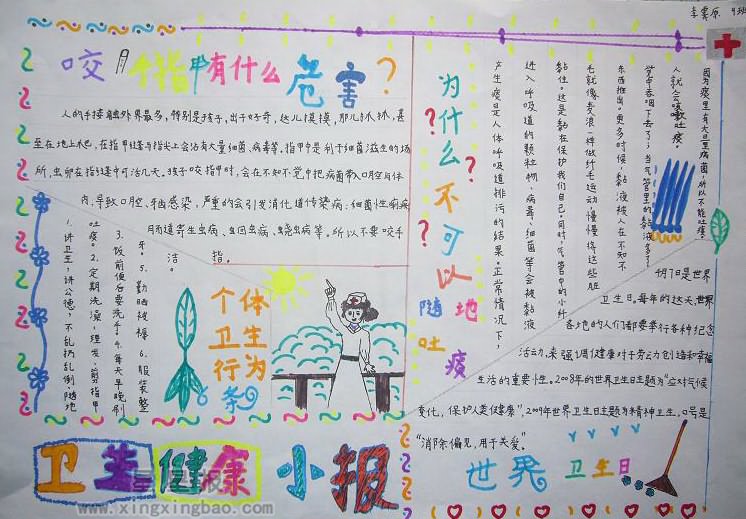 李雲原 4班
咬指甲有什么危害?
人的手接触外界最多,特别是孩子,出于好奇,这儿摸摸,那儿抓抓,甚
至在地上爬,在指甲缝与指尖上会沾有大量细菌、病毒等。指甲中是利于细菌滋生的场
所,虫卵在指缝中可活几天。孩子咬指甲时,会在不知不觉中把病菌带入口腔与体
内,导致口腔、牙齿感染,严重的会引发消化道传染病:细菌性痢疾
肠道寄生虫病、蛔虫病、蛲虫病等,所以不要咬手
指。
为什么不可以随地吐痰
???
因为痰里有大量病菌,所以不能吐痰。
人就会咳嗽吐痰。
东西推出。更多时候,黏液被人在不知不
毛就像麦浪一样做纤毛运动慢慢将这些脏
黏住。这是黏在保护我们自己。同时,气管中的小纤
进入呼吸道的颗粒物、病毒、细菌等会被黏液
产生痰是人体呼吸道排污的结果。正常情况下,
个体卫生行为条
1.讲卫生,讲公德,不乱扔乱倒,随地
吐痰。2.定期洗澡,理发,剪指甲
3.饭前便后要洗手 4.每天早、晚刷
牙。5.勤晒被褥 6.服装整
洁。
4月7日是世界
卫生日。每年的这天,世界
各地的人们都要举行各种纪念
活动,来强调健康对于劳动创造和幸福
生活的重要性。2008年的世界卫生日主题为“应对气候
变化,保护人类健康”,2009年世界卫生日主题为精神卫生,口号是
“消除偏见,用于关爱”。
世界卫生日
卫生健康小报
www.xingxingbao.com